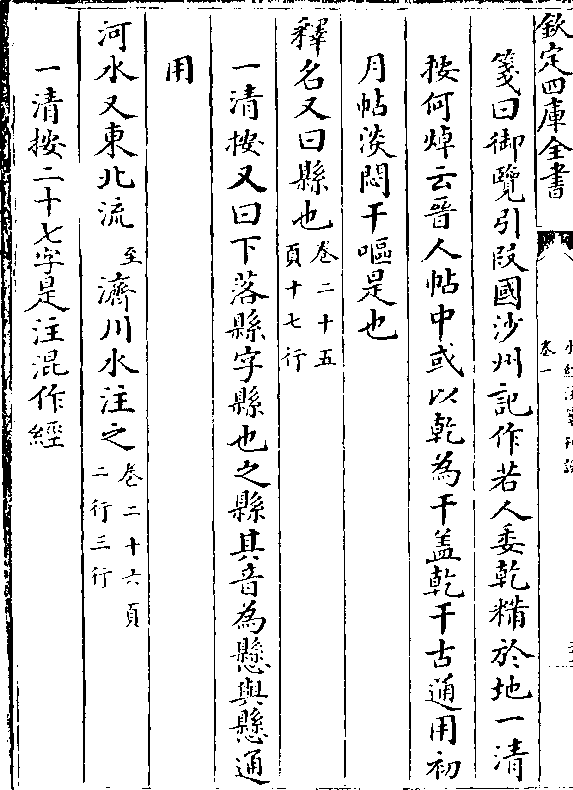 欽定四庫全書
卷一
箋曰御覽引段國沙州記作若人委乾糒於地一清
按何焯云晉人帖中或以乾為干盖乾干古通用初
月帖淡悶干嘔是也
釋名又曰縣也卷二十五
頁十七行
一清按又曰下落縣字縣也之縣其音為懸與懸通
用
河水又東北流至濟川水注之卷二十六頁
二行三行
一清按二十七字是注混作經